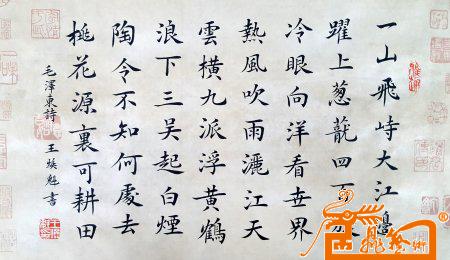 一山飛峙大江邊
躍上葱蘢四百旋
冷眼向洋看世界
熱風吹雨灑江天
雲橫九派浮黃鶴
浪下三吳起白煙
陶令不知何處去
桃花源裏可耕田
毛澤東詩 王魁書